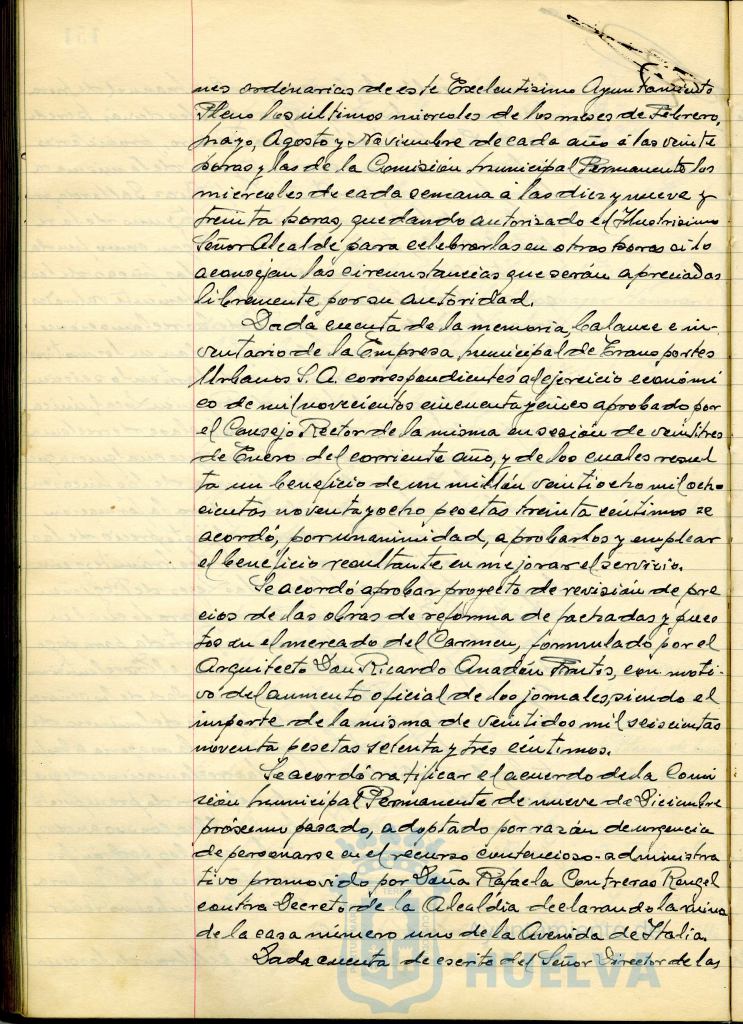 nes ordinarias de este Exelentisimo Ayuntamiento
Pleno los últimos miercoles de los meses de Febrero,
mayo, Agosto y Noviembre de cada año a las veinte
horas y las de la Comisión municipal Permanente los
miercoles de cada semana a las diez y nueve y
treinta horas, quedando autorizado el Ilustrisimo
Señor Alcalde para celebrarlas en otras horas si lo
aconsejan las circunstancias que serán apreciadas
libremente por su autoridad.
Dada cuenta de la memoria, balance e in-
ventario de la Empresa municipal de Transportes
Urbanos S.A. correspondientes al ejercicio económi
co de mil novecientos cincuenta y cinco aprobado por
el Consejo Rector de la misma en sesión de veintitres
de Enero del corriente año, y de los cuales resul
ta un beneficio de un millón veintiocho mil ocho-
cientas noventa y ocho pesetas treinta céntimos se
acordó, por unanimidad, aprobarlos y emplear
el beneficio resultante en mejorar el servicio.
Se acordó aprobar proyecto de revisión de pre
cios de las obras de reforma de fachadas y pues
tos en el mercado del Carmen, formulado por el
Arquitecto Don Ricardo Anadón Frutos, con moti-
vo del aumento oficial de los jornales, siendo el
importe de la misma de veintidos mil seiscientas
noventa pesetas setenta y tres céntimos.
Se acordó ratificar el acuerdo de la Comi
sión municipal Permanente de nueve de Diciembre
próximo pasado, adoptado por razón de urgencia
de personarse en el recurso contencioso-administra
tivo promovido por Doña Rafaela Contreras Rengel
contra Decreto de la Alcaldía declarando la ruina
de la casa número uno de la Avenida de Italia.
Dada cuenta de escrito del Señor Director de las
HUELVA